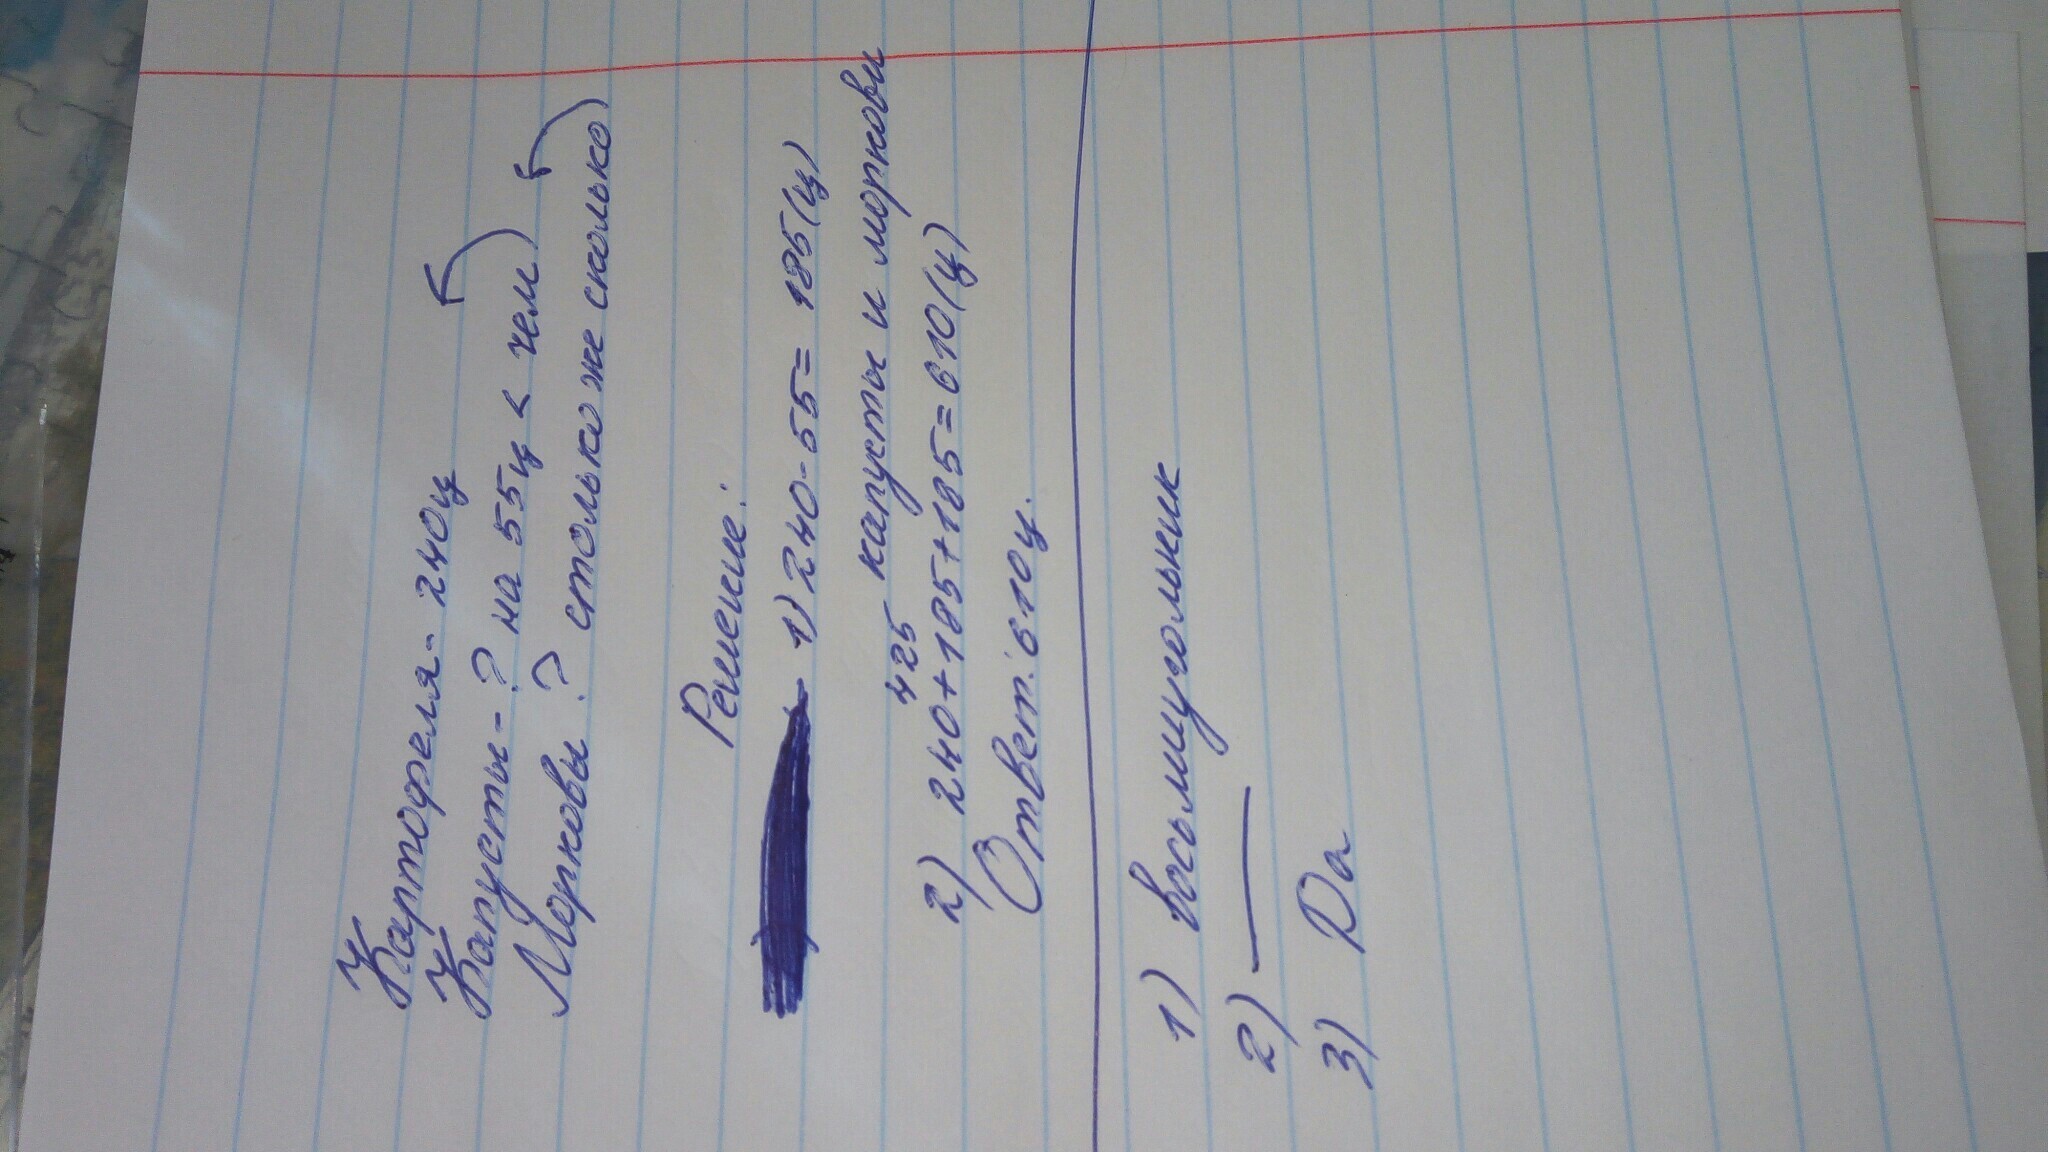 Картофеля - 240ц
Капусты - ? на 55ц < чем
Морковы ? столько же сколько
Решение:
1) 240-55= 185(ц)
капусты и моркови
425
2) 240+185+185=610(ц)
Ответ: 610ц.
1) восьмиугольник
2) —
3) Да